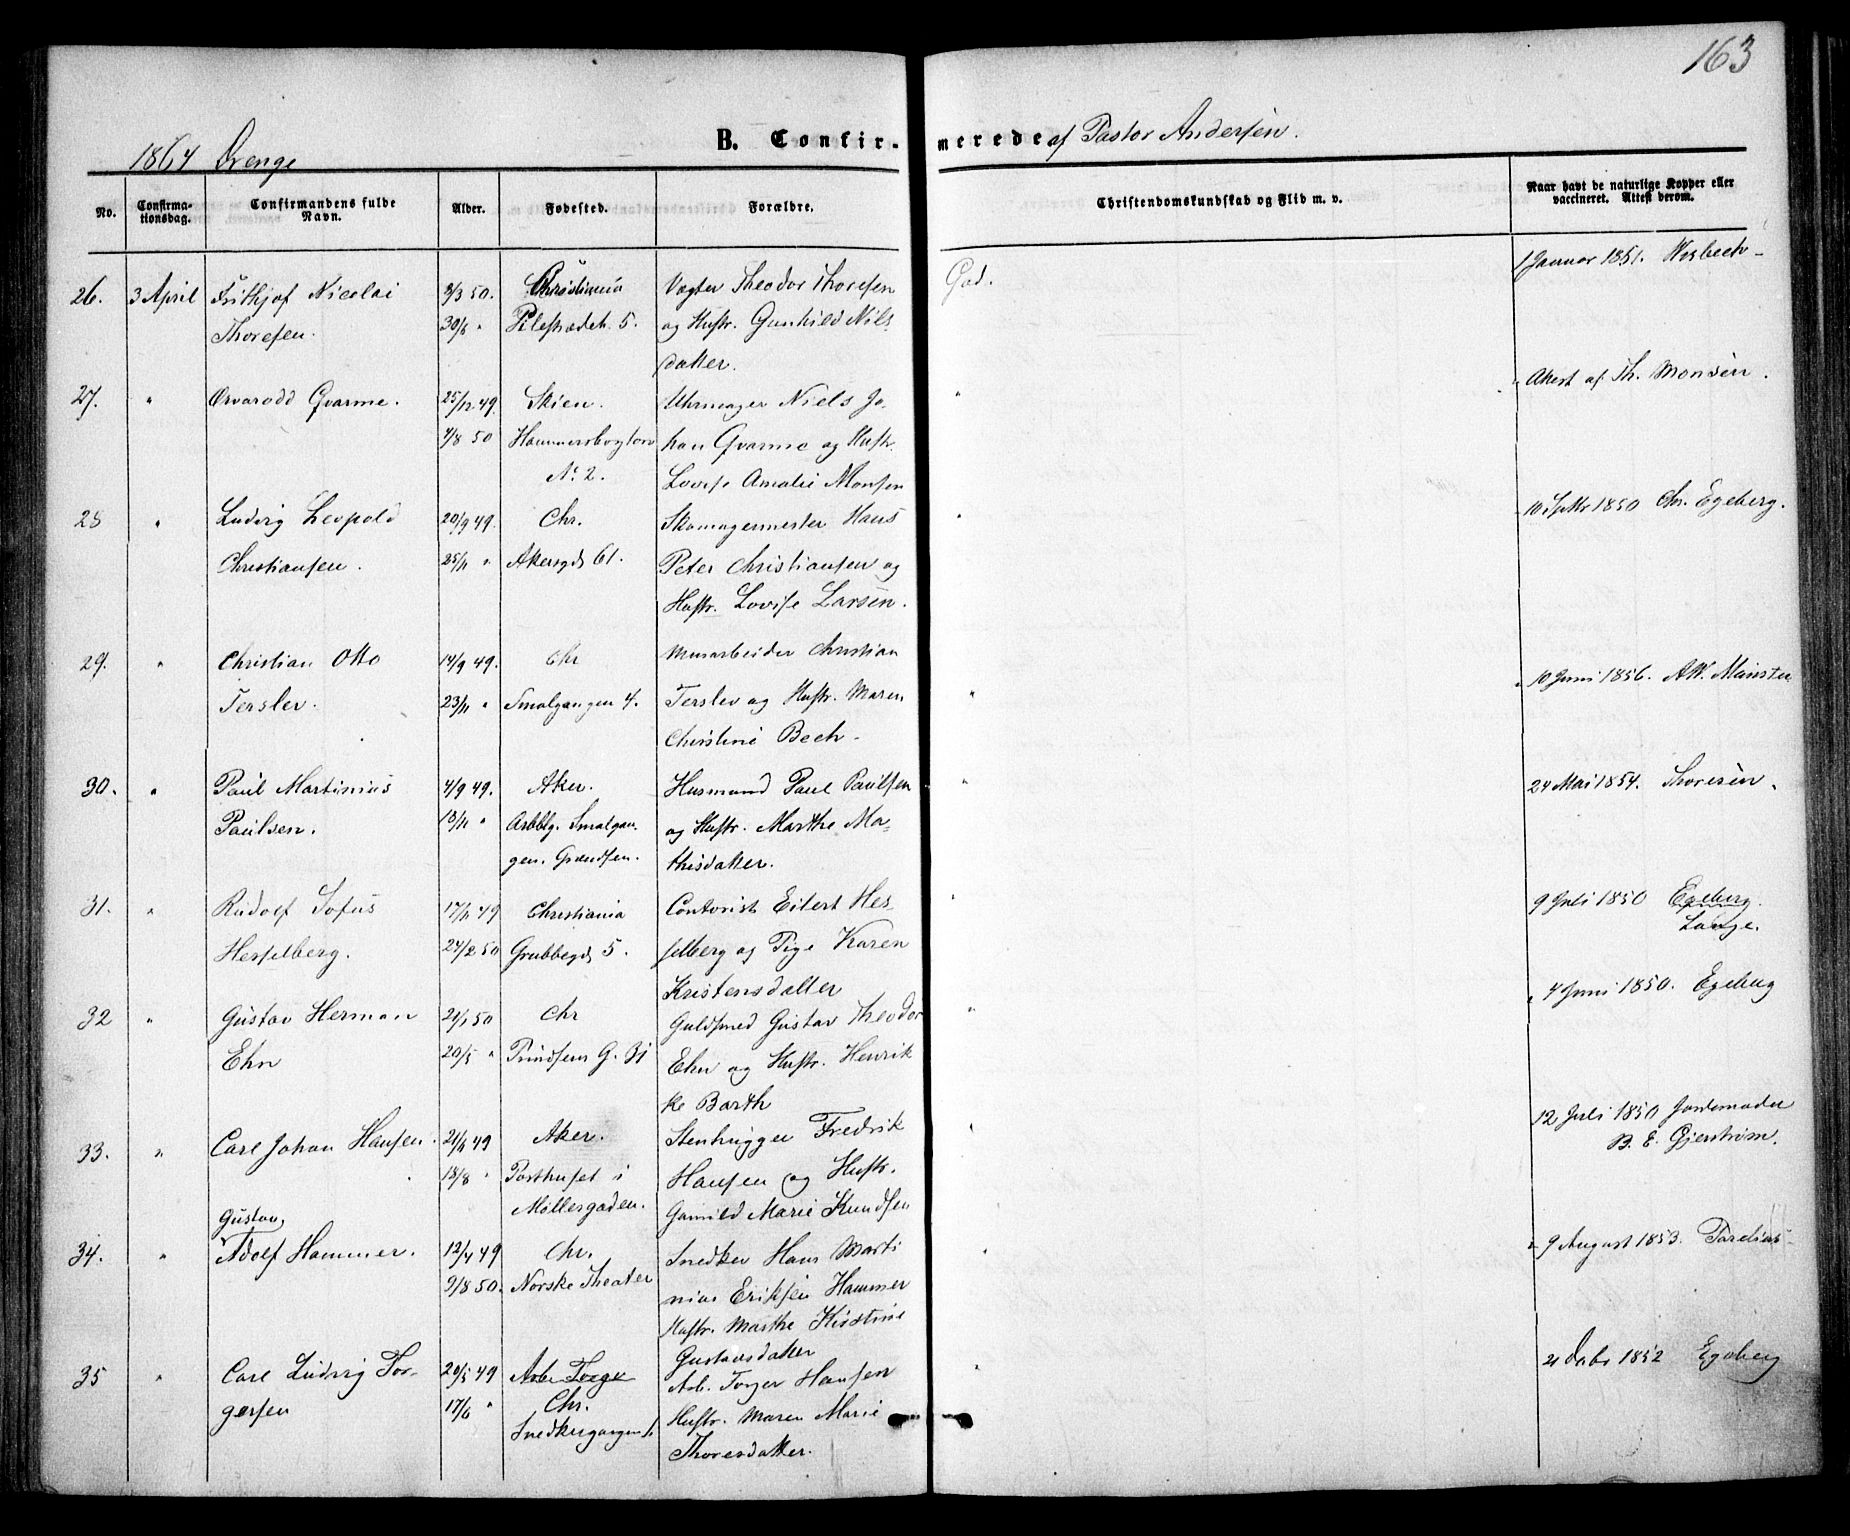 163
1864 Drenge
B. Confir-
merede af Pastor Andersen.
No.
Confirma-
tionsdag.
Confirmandens fulde
Navn.
Alder.
Fødested.
Forældre.
Christendomskundskab og Flid m. v.
Naar havt de naturlige Kopper eller
vaccineret. Attest derom.
26. 3 April Frithjof Nicolai 3/3 50. Christiania Vægter Theodor Thoresen God. 1 Januar 1851. Wisbech
Thoresen. 30/5 " Pilestrædet. 5. og Hustr. Gunhild Nils
datter.
27. " Orvarodd Qvarme. 25/12 49. Skien. Uhrmager Niels Jo " Attest af Th. Monsen.
4/8 50 Hammersborgtorv han Qvarme og Hustr.
No. 2. Lovise Amalie Monsen
28 " Ludvig Leopold 20/9 49. Chr. Skomagermester Hans " 10 Sptbr 1850 Chr. Egeberg.
Christiansen. 25/11 " Akersgd. 61. Peter Christiansen og
Hustr. Lovise Larsen.
29. " Christian Otto 14/9 49. Chr Murarbeider Christian
Terslev. 23/11 " Smalgangen 4. Terslev og Hustr. Maren " 10 Juni 1856. Münster
Christine Bech.
30. " Paul Martinius 4/9 49. Aker. Husmand Paul Paulsen " 24 Mai 1854. Thoresen.
Paulsen. 18/11 " Arbblg. Smalgan- og Hustr. Marthe Ma-
gen. Grændsen. thisdatter.
31. " Rudolf Sofus 17/11 49 Christiania Contorist Eilert Hes- " 9 Juli 1850 Egeberg.
Lange.
Hesselberg. 24/2 50 Grubbegd. 5. selberg og Pige Karen
Kristensdatter
32 " Gustav Herman 21/1 50 Chr Guldsmed Gustav Theodor " 4 Juni 1850. Egeberg
Ehn 20/5 " Prindsens G. Ehn og Hustr. Henrik
ke Barth
33. " Carl Johan Hansen. 21/4 49 Aker. Stenhugger Fredrik 12 Juli 1850 Jordemoder
B. E. Gjerstrøm.
18/8 " Posthuset i Hansen og Hustr.
Møllergaden. Gunild Marie Knudsen
Gustav
34. " Adolf Hammer. 12/4 49 Chr. Snedker Hans Marti " 9 August 1853.
9/8 50. Norske Theater nius Eriksen Hammer
Hustr. Marthe Kisstine
Gustavsdatter
35 " Carl Ludvig Tor- 20/5 49 Arb. Torger Arb. Torger Hansen " 21 1852 Egeberg
gersen 17/6 " Chr. Hustr. Maren Marie
Snedkergangen Thoresdatter.